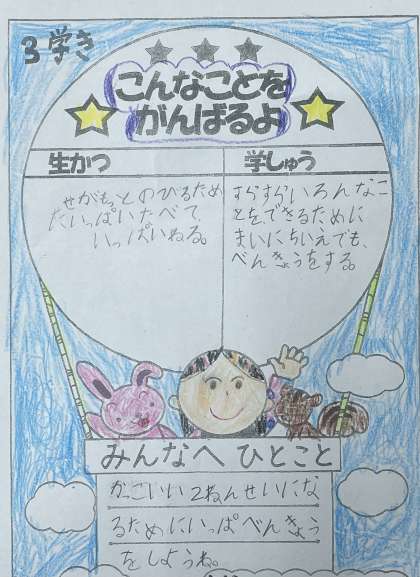 3学き
こんなことを
がんばるよ
生かつ
せがもっとのびるため
たいっぱいたべて、
いっぱいねる。
学しゅう
すらすらいろんなこ
とを、できるために
まいにちいえでも、
べんきょうをする。
みんなへ ひとこと
かっこいい2ねんせいにな
るためにいっぱべんきょう
をしようね。